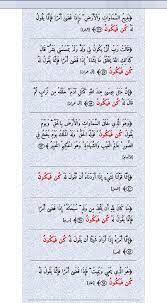 ﴿بَدِيعُ السَّمَاوَاتِ وَالْأَرْضِ وَإِذَا قَضَى أَمْرًا فَإِنَّمَا يَقُولُ
لَهُ كُن فَيَكُونُ﴾
﴿قَالَتْ رَبِّ أَنَّى يَكُونُ لِي وَلَدٌ وَلَمْ يَمْسَسْنِي بَشَرٌ قَالَ
كَذَلِكِ اللَّهُ يَخْلُقُ مَا يَشَاءُ إِذَا قَضَى أَمْرًا فَإِنَّمَا يَقُولُ
لَهُ كُن فَيَكُونُ﴾
﴿إِنَّ مَثَلَ عِيسَى عِندَ اللَّهِ كَمَثَلِ آدَمَ خَلَقَهُ مِن تُرَابٍ ثُمَّ
قَالَ لَهُ كُن فَيَكُونُ﴾
﴿وَهُوَ الَّذِي خَلَقَ السَّمَاوَاتِ وَالْأَرْضَ بِالْحَقِّ وَيَوْمَ
يَقُولُ كُن فَيَكُونُ قَوْلُهُ الْحَقُّ وَلَهُ الْمُلْكُ يَوْمَ يُنفَخُ
فِي الصُّورِ عَالِمُ الْغَيْبِ وَالشَّهَادَةِ وَهُوَ الْحَكِيمُ الْخَبِيرُ﴾
﴿إِنَّمَا قَوْلُنَا لِشَيْءٍ إِذَا أَرَدْنَاهُ أَن نَّقُولَ لَهُ
كُن فَيَكُونُ﴾
﴿مَا كَانَ لِلَّهِ أَن يَتَّخِذَ مِن وَلَدٍ سُبْحَانَهُ إِذَا قَضَى أَمْرًا فَإِنَّمَا
يَقُولُ لَهُ كُن فَيَكُونُ﴾
﴿إِنَّمَا أَمْرُهُ إِذَا أَرَادَ شَيْئًا أَن يَقُولَ لَهُ كُن
فَيَكُونُ﴾
﴿هُوَ الَّذِي يُحْيِي وَيُمِيتُ فَإِذَا قَضَى أَمْرًا فَإِنَّمَا يَقُولُ لَهُ
كُن فَيَكُونُ﴾